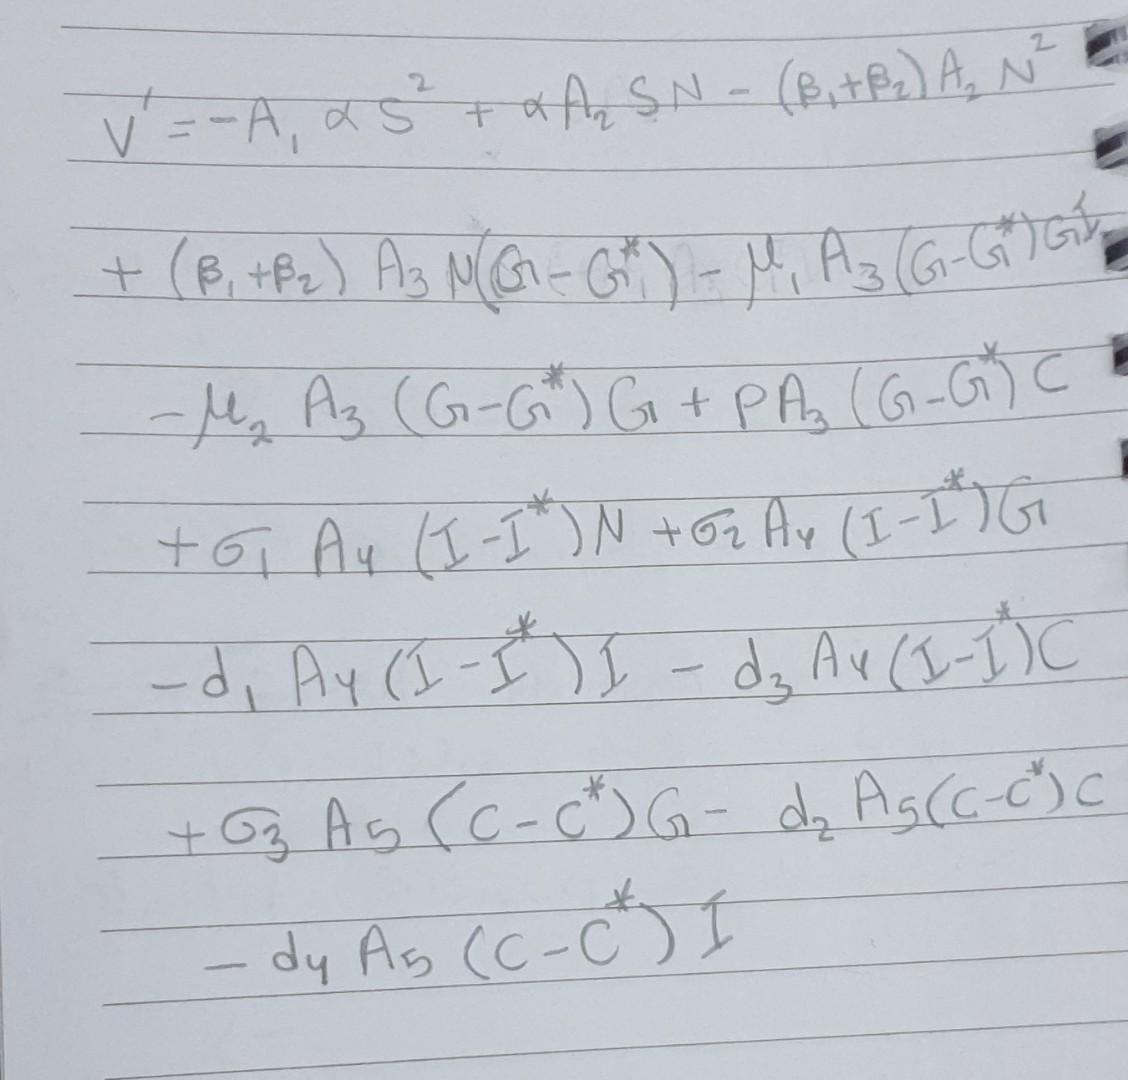 V' = -A₁ α S² + α A₂ S N - (β₁+β₂) A₂ N²
+ (β₁+β₂) A₃ N(G-G*) - μ₁ A₃ (G-G*) G
-μ₂ A₃ (G-G*) G + ρ A₃ (G-G*) C
+σ₁ A₄ (I-I*) N + σ₂ A₄ (I-I*) G
-d₁ A₄ (I-I*) I - d₃ A₄ (I-I*) C
+σ₃ A₅ (C-C*) G - d₂ A₅ (C-C*) C
- d₄ A₅ (C-C*) I